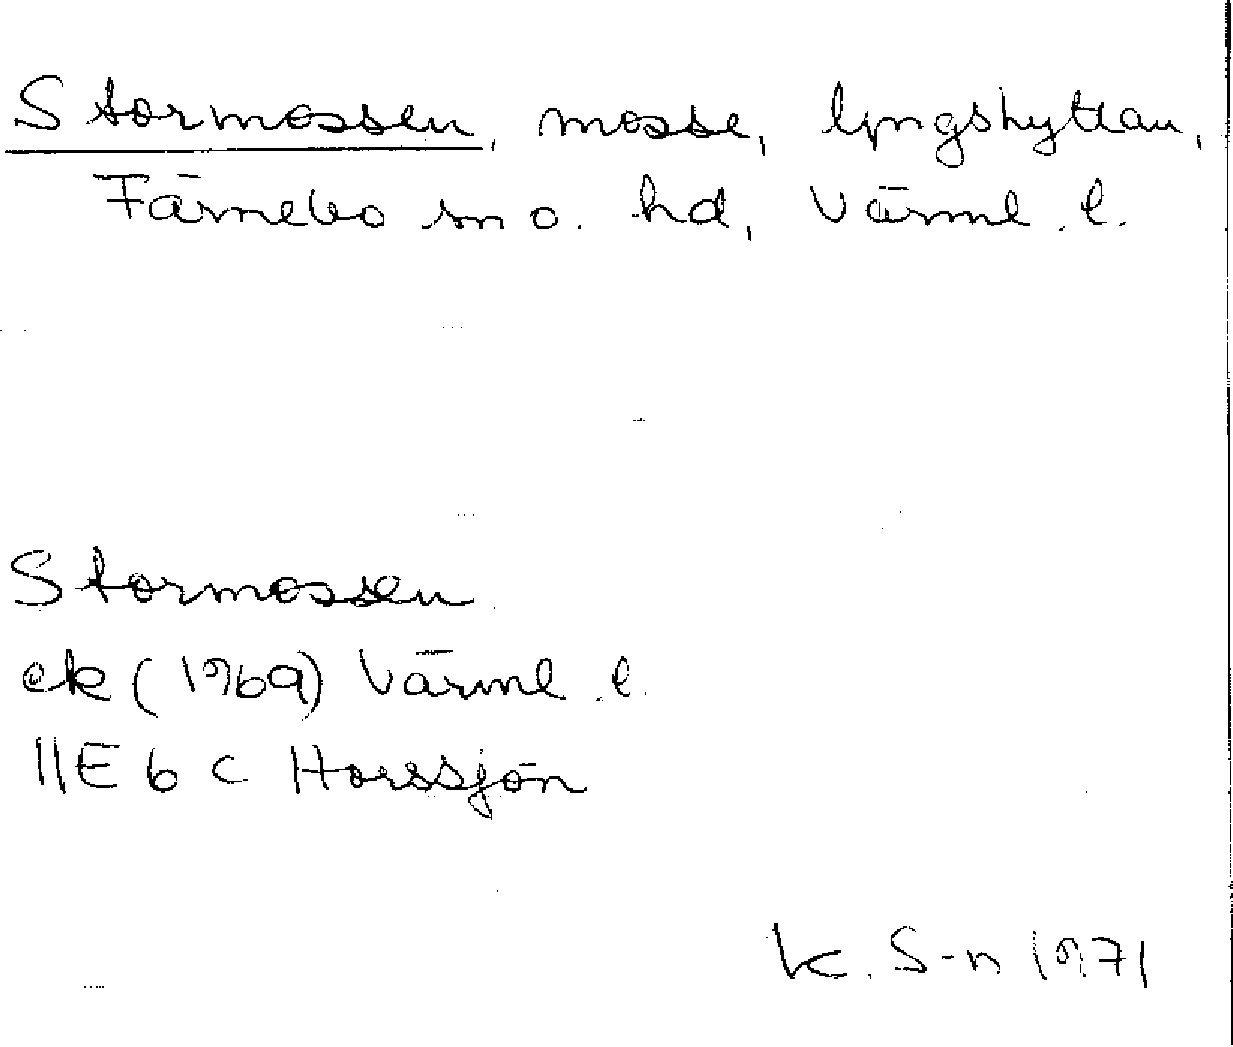 Stormossen, mosse, lyngshyttan,
Färnebo sn o. hd, Värml. l.
Stormossen
ek (1969) Värml. l.
11E 6 c Horssjön
K. S-n 1971